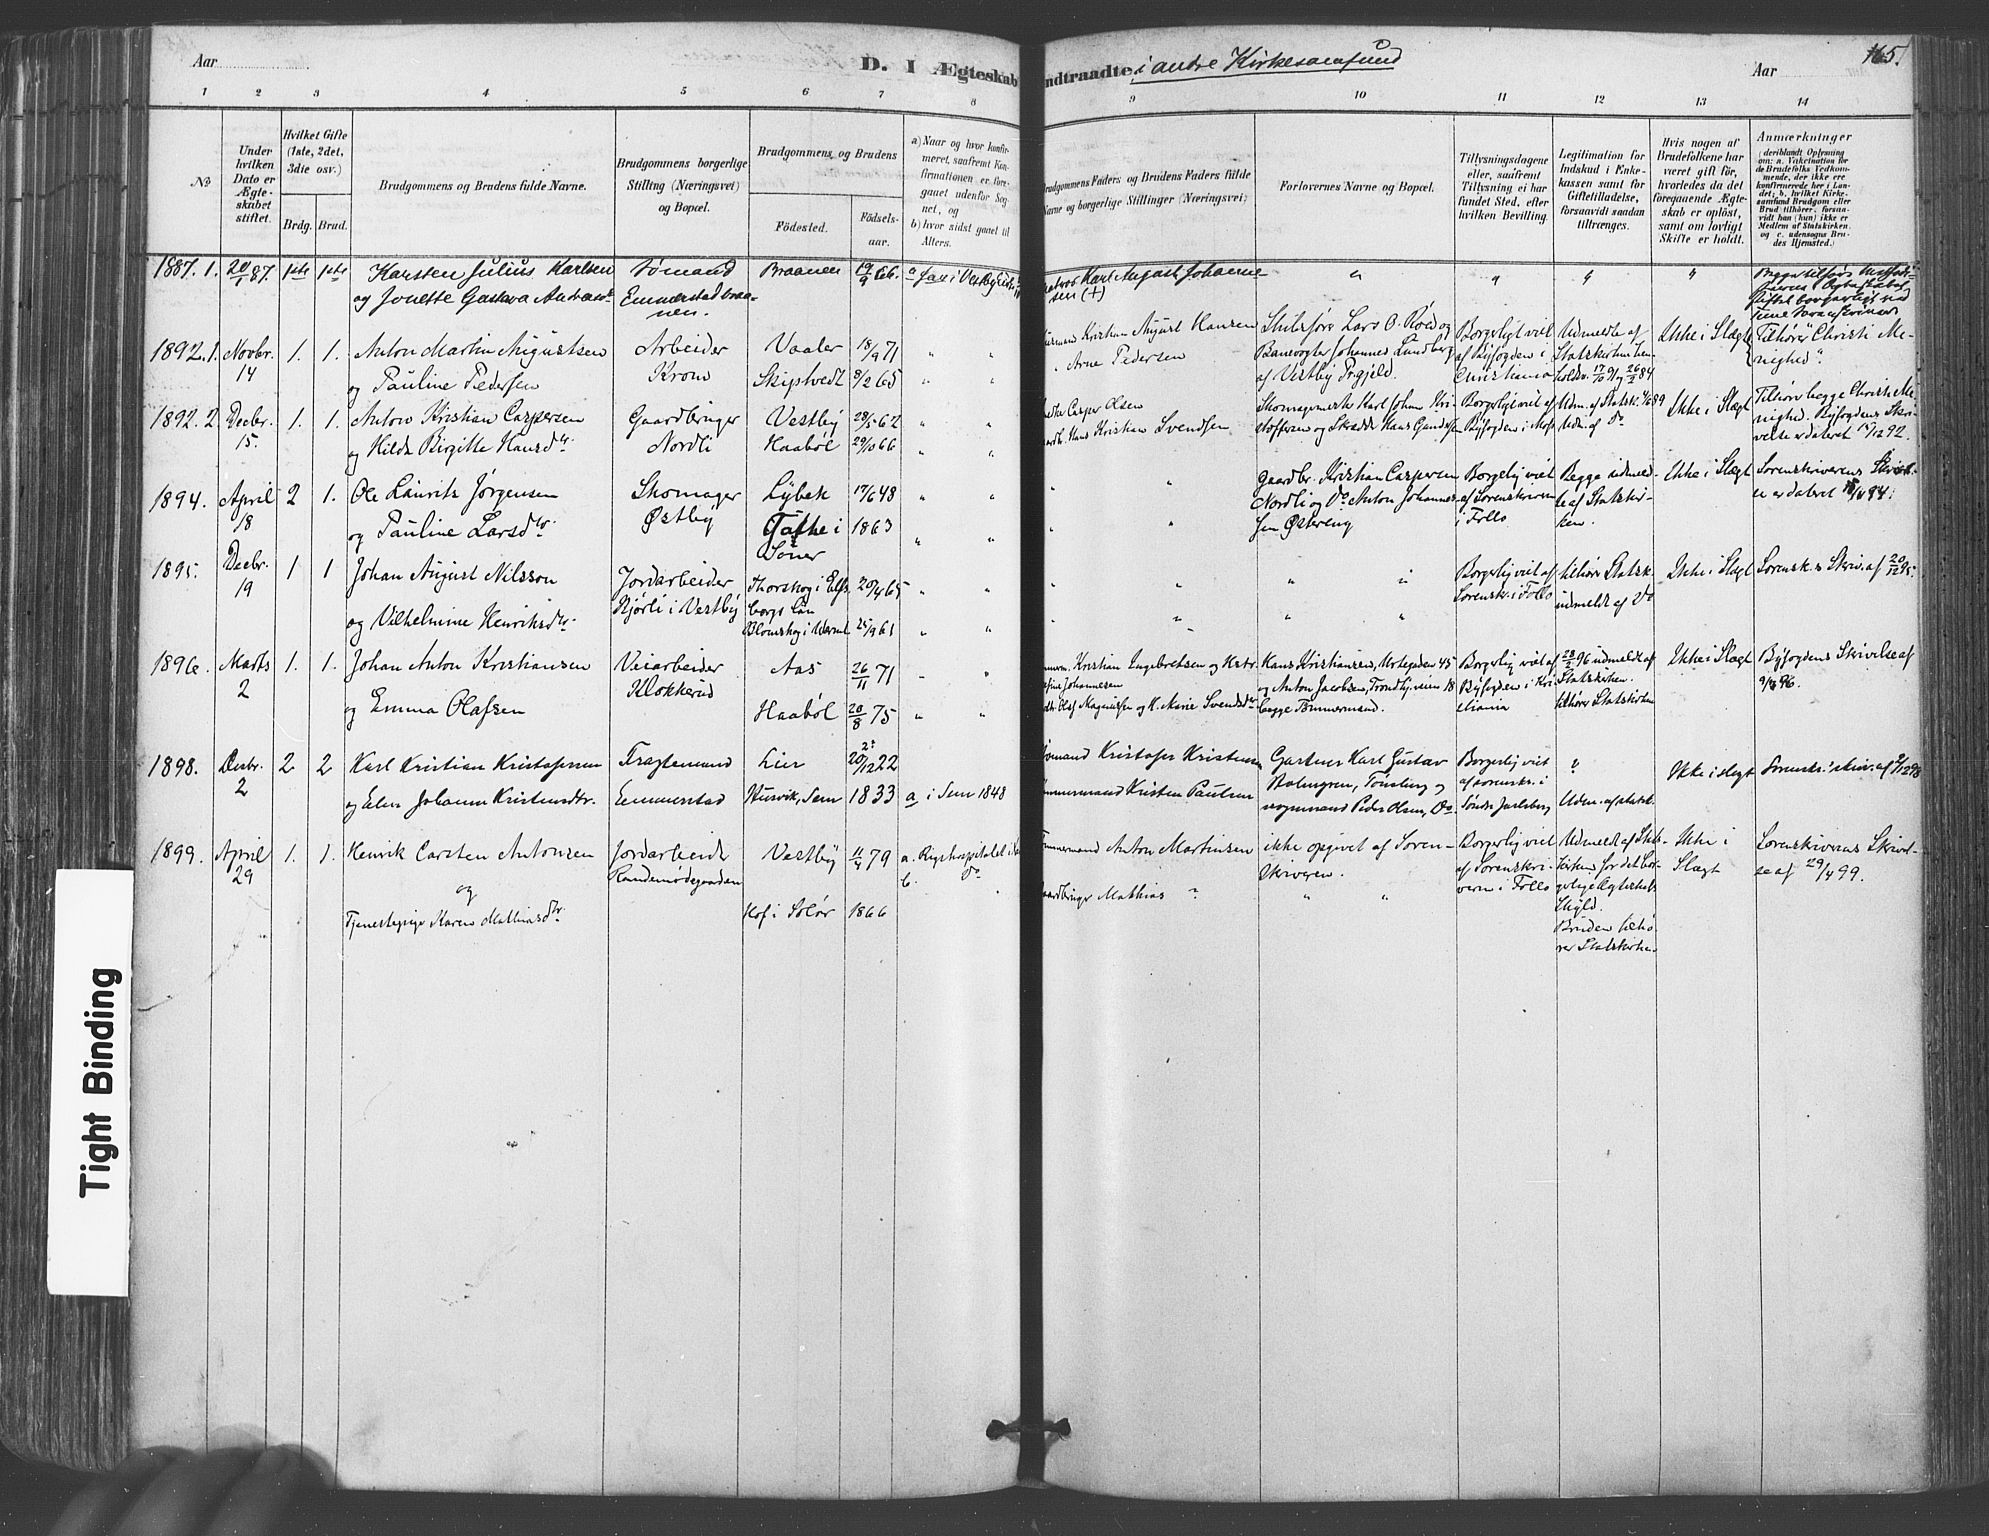 Aar
D. I Ægteskab
ndtraadte i andre Kirkesamfund
Aar
165.
1 2 3 4 5 6 7 8 9 10 11 12 13 14
No
Under
hvilken
Dato er
Ægte-
skabet
stiftet.
Hvilket Gifte
(1ste, 2det,
3die osv.)
Brdg. Brud.
Brudgommens og Brudens fulde Navne.
Brudgommens borgerlige
Stilling (Næringsvei)
og Bopæl.
Brudgommens og Brudens
Födested.
Födsels-
aar.
a) Naar og hvor konfir-
meret, saafremt Kon-
firmationen er fore-
gaaet udenfor Sog-
net, og
b) hvor sidst gaaet til
Alters.
Brudgommens Faders og Brudens Faders fulde
Navne og borgerlige Stillinger (Næringsvei)
Forlovernes Navne og Bopæl.
Tillysningsdagene
eller, saafremt
Tillysning ei har
fundet Sted, efter
hvilken Bevilling.
Legitimation for
Indskud i Enke-
kassen samt for
Giftetilladelse,
forsaavidt saadan
tiltrænges.
Hvis nogen af
Brudefolkene har
været gift før,
hvorledes da det
foregaaende Ægte-
skab er opløst,
samt om lovligt
Skifte er holdt.
Anmærkninger
(deriblandt Oplysning
om: a. Vakcination for
de Brudefolks Vedkom-
mende, der ikke ere
konfirmerede her i Lan-
det; b. hvilket Kirke-
samfund Brudgom eller
Brud tilhörer, forsaa-
vidt han (hun) ikke er
Medlem af Statskirken,
og c. udensogns Bru-
des Hjemsted.)
1887. 1. 20/1 87. 1ste 1ste Karsten Julius Karlsen Sømand Braanen 19/9 66. a
og Jonette Gustava Emmerstadbraa-
nen.
Matros Karl August Johanne
sen (+)
1892. 1. Novbr. 14 1. 1. Anton Martin Augustsen Arbeider Vaaler 18/9 71
og Pauline Pedersen Krom Skiptvedt 8/2 65
Kristian August Hansen
Arne Pedersen
Lars O. Røed og
Banevogter Johannes Lundberg
af Vestby Prgjeld.
Borgerligt viet
af Byfogden i
Christiania
Udmeldte af
Statskirken hen-
holdsv. 17/10 91 og 26/2 84
Ikke i Slægt
Tilhører "Christi Me-
nighed".
1892. 2 Decbr. 15. 1. 1. Anton Kristian Caspersen Gaardbruger Vestby 28/5 62
og Hilda Birgitte Hansdtr. Nordli Haabøl 29/10 66
Casper Olsen
Hans Kristian Svendsen
Skomagermestr Karl Johan Kri-
stoffersen og Skrædder Hans Gundersen
Borgerligt viet af
Byfogden i Moss
Udm. af Statsk.
Udm. af Do
Ikke i Slægt
Tilhører begge Christi Me-
nighed. Byfogdens Skri-
velse er dateret 15/12 92.
1894. April 18 2 1. Ole Laurits Jørgensen Skomager Lybek 17/6 48
og Pauline Larsdtr. Østby i 1863
Soner
Gaardbr. Kristian Caspersen
Nordli og Do Anton Johannes-
sen Østreng
Borgerlig viet
af Sorenskriveren
i Follo
Begge udmeld-
te af Statskir-
ken.
Ikke i Slægt
Sorenskriverens Skrivel-
se er dateret 18/4 94.
1895. Decbr. 19 1 1 Johan August Nilsson Jordarbeider Thorskog i Elfs- 20/4 65
borgs län
og Vilhelmine Henriksdtr. i Vestby Blomskog i Werml. 25/9 61
Borgerlig viet af
Sorensk. i Follo
tilhører Statsk.
udmeldt af Do
Ikke i Slægt
Sorensk.s Skriv. af 20/12 95.
1896. Marts 2 1. 1. Johan Anton Kristiansen Veiarbeider Aas 26/11 71
og Emma Olafsen Klokkerud Haabøl 20/8 75
Kristian Engebretsen og
Johannesen
Olaf Magnussen og K. Marie Svendsdtr.
Hans Kristiansen, Urtegaden 45
og Anton Jacobsen, Trondhj.veien 18
begge Tømmermænd.
Borgerlig viet af
Byfogden i Kri-
stiania
28/2 96 udmeldt af
Statskirken.
tilhører Statskirken
Ikke i Slægt
Byfogdens Skrivelse af
9/3 96.
1898. Decbr. 2 2 2 Karl Kristian Kristofersen Fragtemand Lier 20/12 22
og Elen Johanne Kristensdtr. Emmerstad Husvik, Sem 1833 a i Sem 1848
Sømand Kristofer Kristensen
Tømmermand Kristen Paulsen
Gartner Karl Gustav
Holmgren, Tønsberg og
vognmand Peder Olsen, Do
Borgerlig viet
af sorensk. i
Søndre Jarlsberg
Udm. af statsk.
Ikke i slægt
Sorensk.'s skriv. af 2/12 98
1899. April 29 1. 1. Henrik Carsten Antonsen Jordarbeider Vestby 11/4 79 a. Rigshospitalet
og Randemødegaarden b.
Tjenestepige Karen Mathiasdtr. Hof i Solør 1866
Tømmermand Anton Martinsen
Gaardbruger Mathias ?
ikke opgivet af Soren-
skriveren.
Borgerlig viet
af Sorenskri-
veren i Follo
Udmeldt af Stats-
kirken for det bor-
gelige Ægteskabs
Skyld.
Bruden tilhø-
rer Statskirken.
Ikke i
Slægt
Sorenskriverens Skrivel-
se af 29/4 99.
Tight Binding